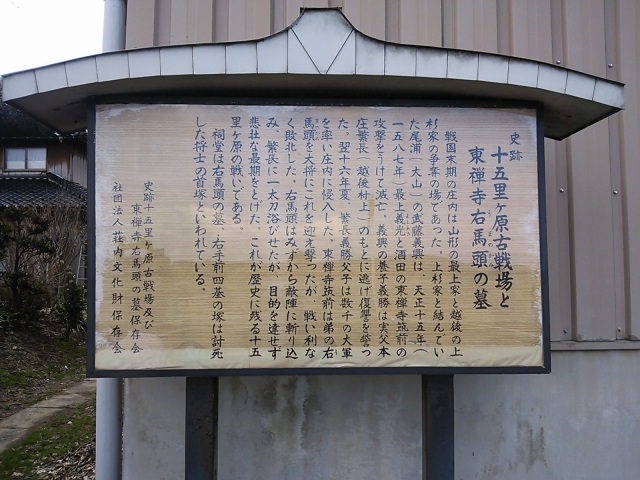 史跡
十五里ヶ原古戦場と
東禅寺右馬頭の墓
戦国末期の庄内は山形の最上家と越後の上
杉家の争奪の場であった。上杉家と結んでい
た尾浦(大山)の武藤義興は、天正十五年(
一五八七年)最上義光と酒田の東禅寺筑前の
攻撃をうけて滅亡、義興の養子義勝は実父本
庄繁長(越後村上)のもとに逃げ復讐を誓っ
た。翌十六年夏、繁長義勝父子は数千の大軍
を率い庄内に侵入した。東禅寺筑前は弟の右
馬頭を大将にこれを迎え撃ったが、戦い利な
く敗北した。右馬頭はみずから敵陣に斬り込
み、繁長に一太刀浴びせたが、目的を達せず
悲壮な最期をとげた。これが歴史に残る十五
里ヶ原の戦いである。
祠堂は右馬頭の墓、右手前四基の塚は討死
した将士の首塚といわれている。
史跡十五里ヶ原古戦場及び
東禅寺右馬頭の墓保存会
社団法人荘内文化財保存会